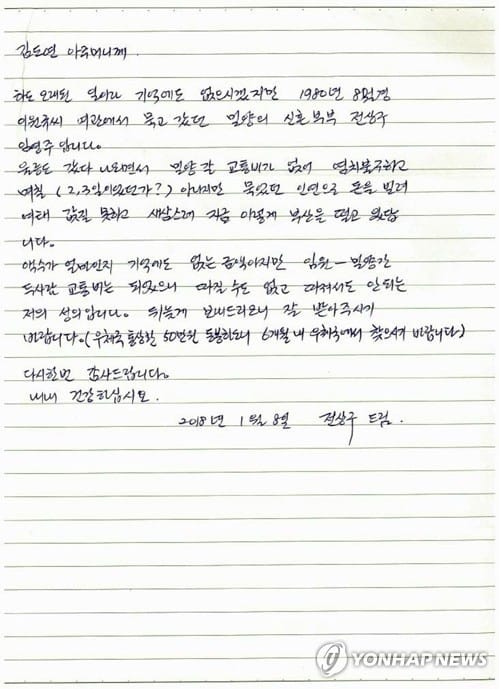 김도연 아주머니께.
하도 오래된 일이라 기억에도 없으시겠지만 1980년 8월경
이원우씨 여관에서 묵고 갔던 밀양의 신혼부부 전상구
임영주 입니다.
울릉도 갔다 나오면서 밀양 갈 교통비가 없어 염치불구하고
며칠 (2,3일이었던가?) 아니지만 묵었던 인연으로 돈을 빌려
여태 갚질 못하고 새삼스레 지금 이렇게 부산을 떨고 있답
니다.
액수가 얼마인지 기억에도 없는 금액이지만 임원-밀양간
두사람 교통비는 되었으니 따질 수도 없고 따져서도 안 되는
저의 성의입니다. 뒤늦게 보내드리오니 잘 받아주시기
바랍니다.(우체국 통상환 50만원 동봉하오니 6개월 내 우체국에서 찾으시기 바랍니다)
다시한번 감사드립니다.
내내 건강하십시오.
2018년 1월 8일 전상구 드림.
YONHAP NEWS